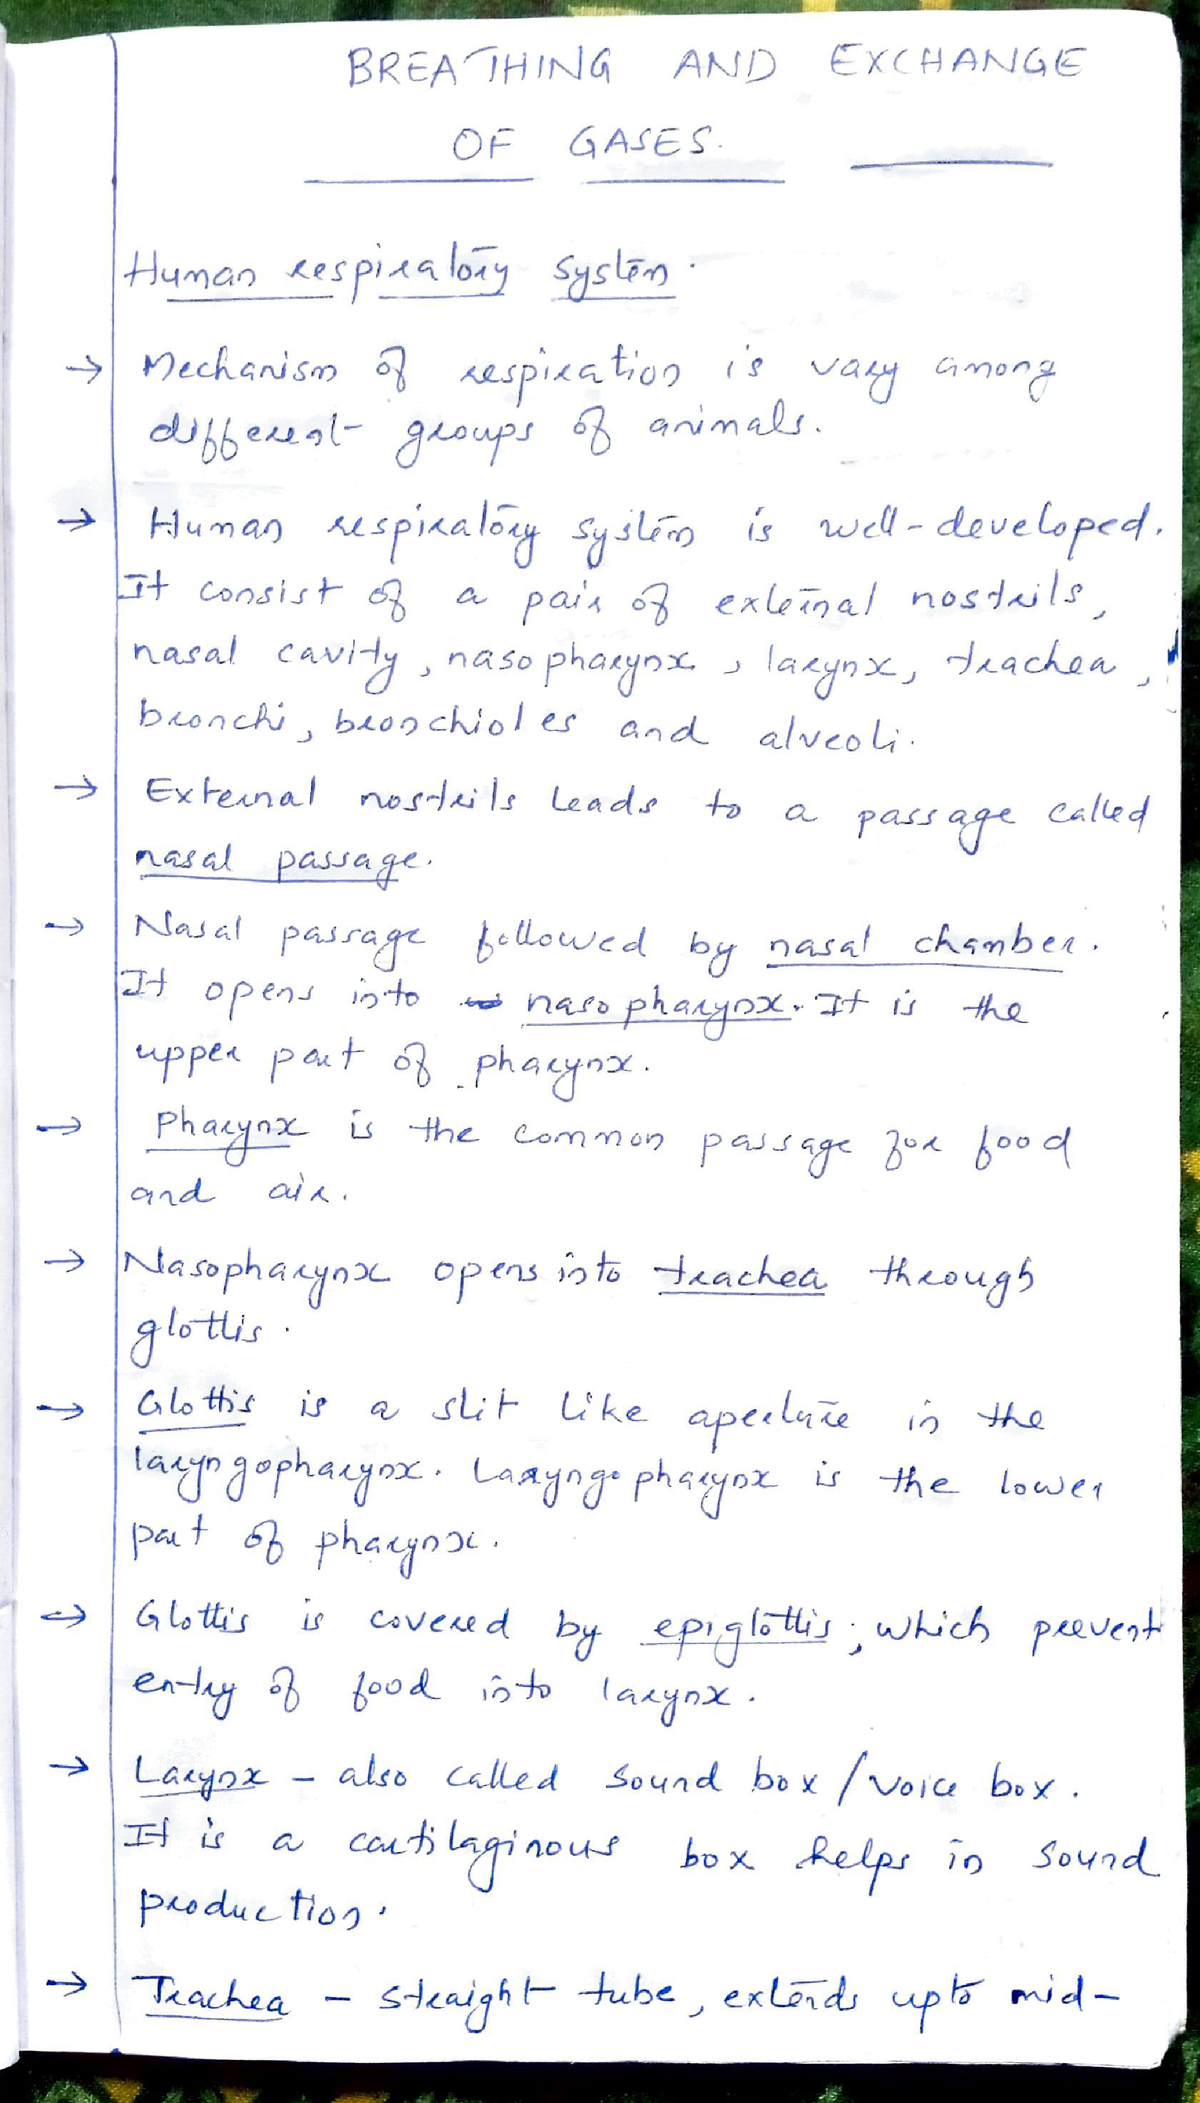 BREATHING AND EXCHANGE
OF GASES.
Human respiratory system.
→ Mechanism of respiration is vary among
different groups of animals.
→ Human respiratory system is well-developed.
It consist of a pair of external nostrils,
nasal cavity, nasopharynx, larynx, trachea,
bronchi, bronchioles and alveoli.
→ External nostrils leads to a passage called
nasal passage.
→ Nasal passage followed by nasal chamber.
It opens into nasopharynx. It is the
upper part of pharynx.
→ Pharynx is the common passage for food
and air.
→ Nasopharynx opens into trachea through
glottis.
→ Glottis is a slit like aperture in the
laryngopharynx. Laryngopharynx is the lower
part of pharynx.
→ Glottis is covered by epiglottis, which prevent
entry of food into larynx.
→ Larynx - also called sound box/voice box.
It is a cartilaginous box helps in sound
production.
→ Trachea - straight tube, extends upto mid-